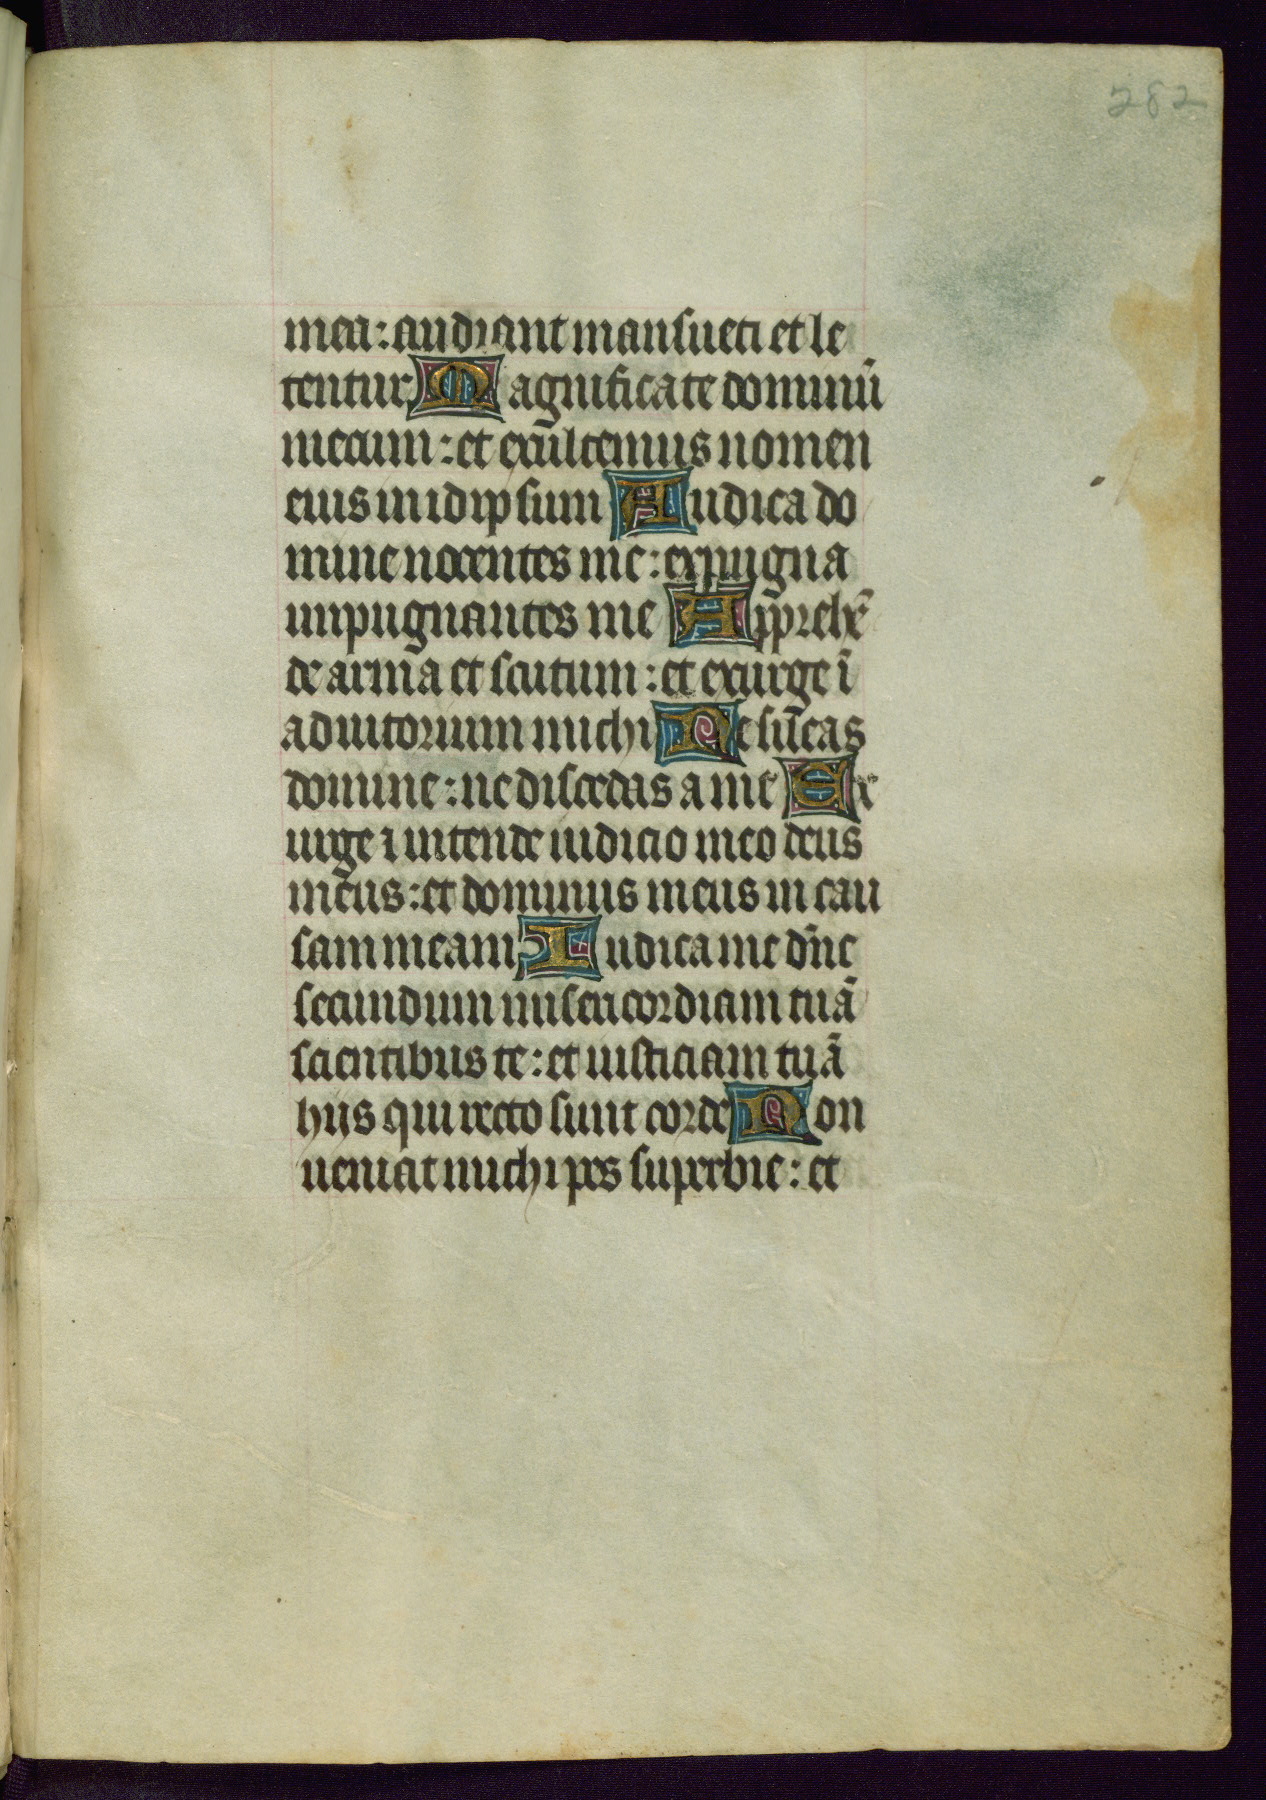 282
mea : audiant mansueti et le
tentur Magnificate dominū
mecum : et exultemus nomen
eius in idipsum Iudica do
mine nocentes me : expugna
inpugnantes me Apprehē
de arma et scutum : et exurge ī
adiutorium michi Ne sileas
domine : ne discedas a me Ex
urge i intende iudicio meo deus
meus : et dominus meus in cau
sam meam Iudica me dn̄e
secundum misericordiam tuā
scientibus te : et iusticiam tuā
hijs qui recto sunt corde Non
ueniat michi pes superbie : et